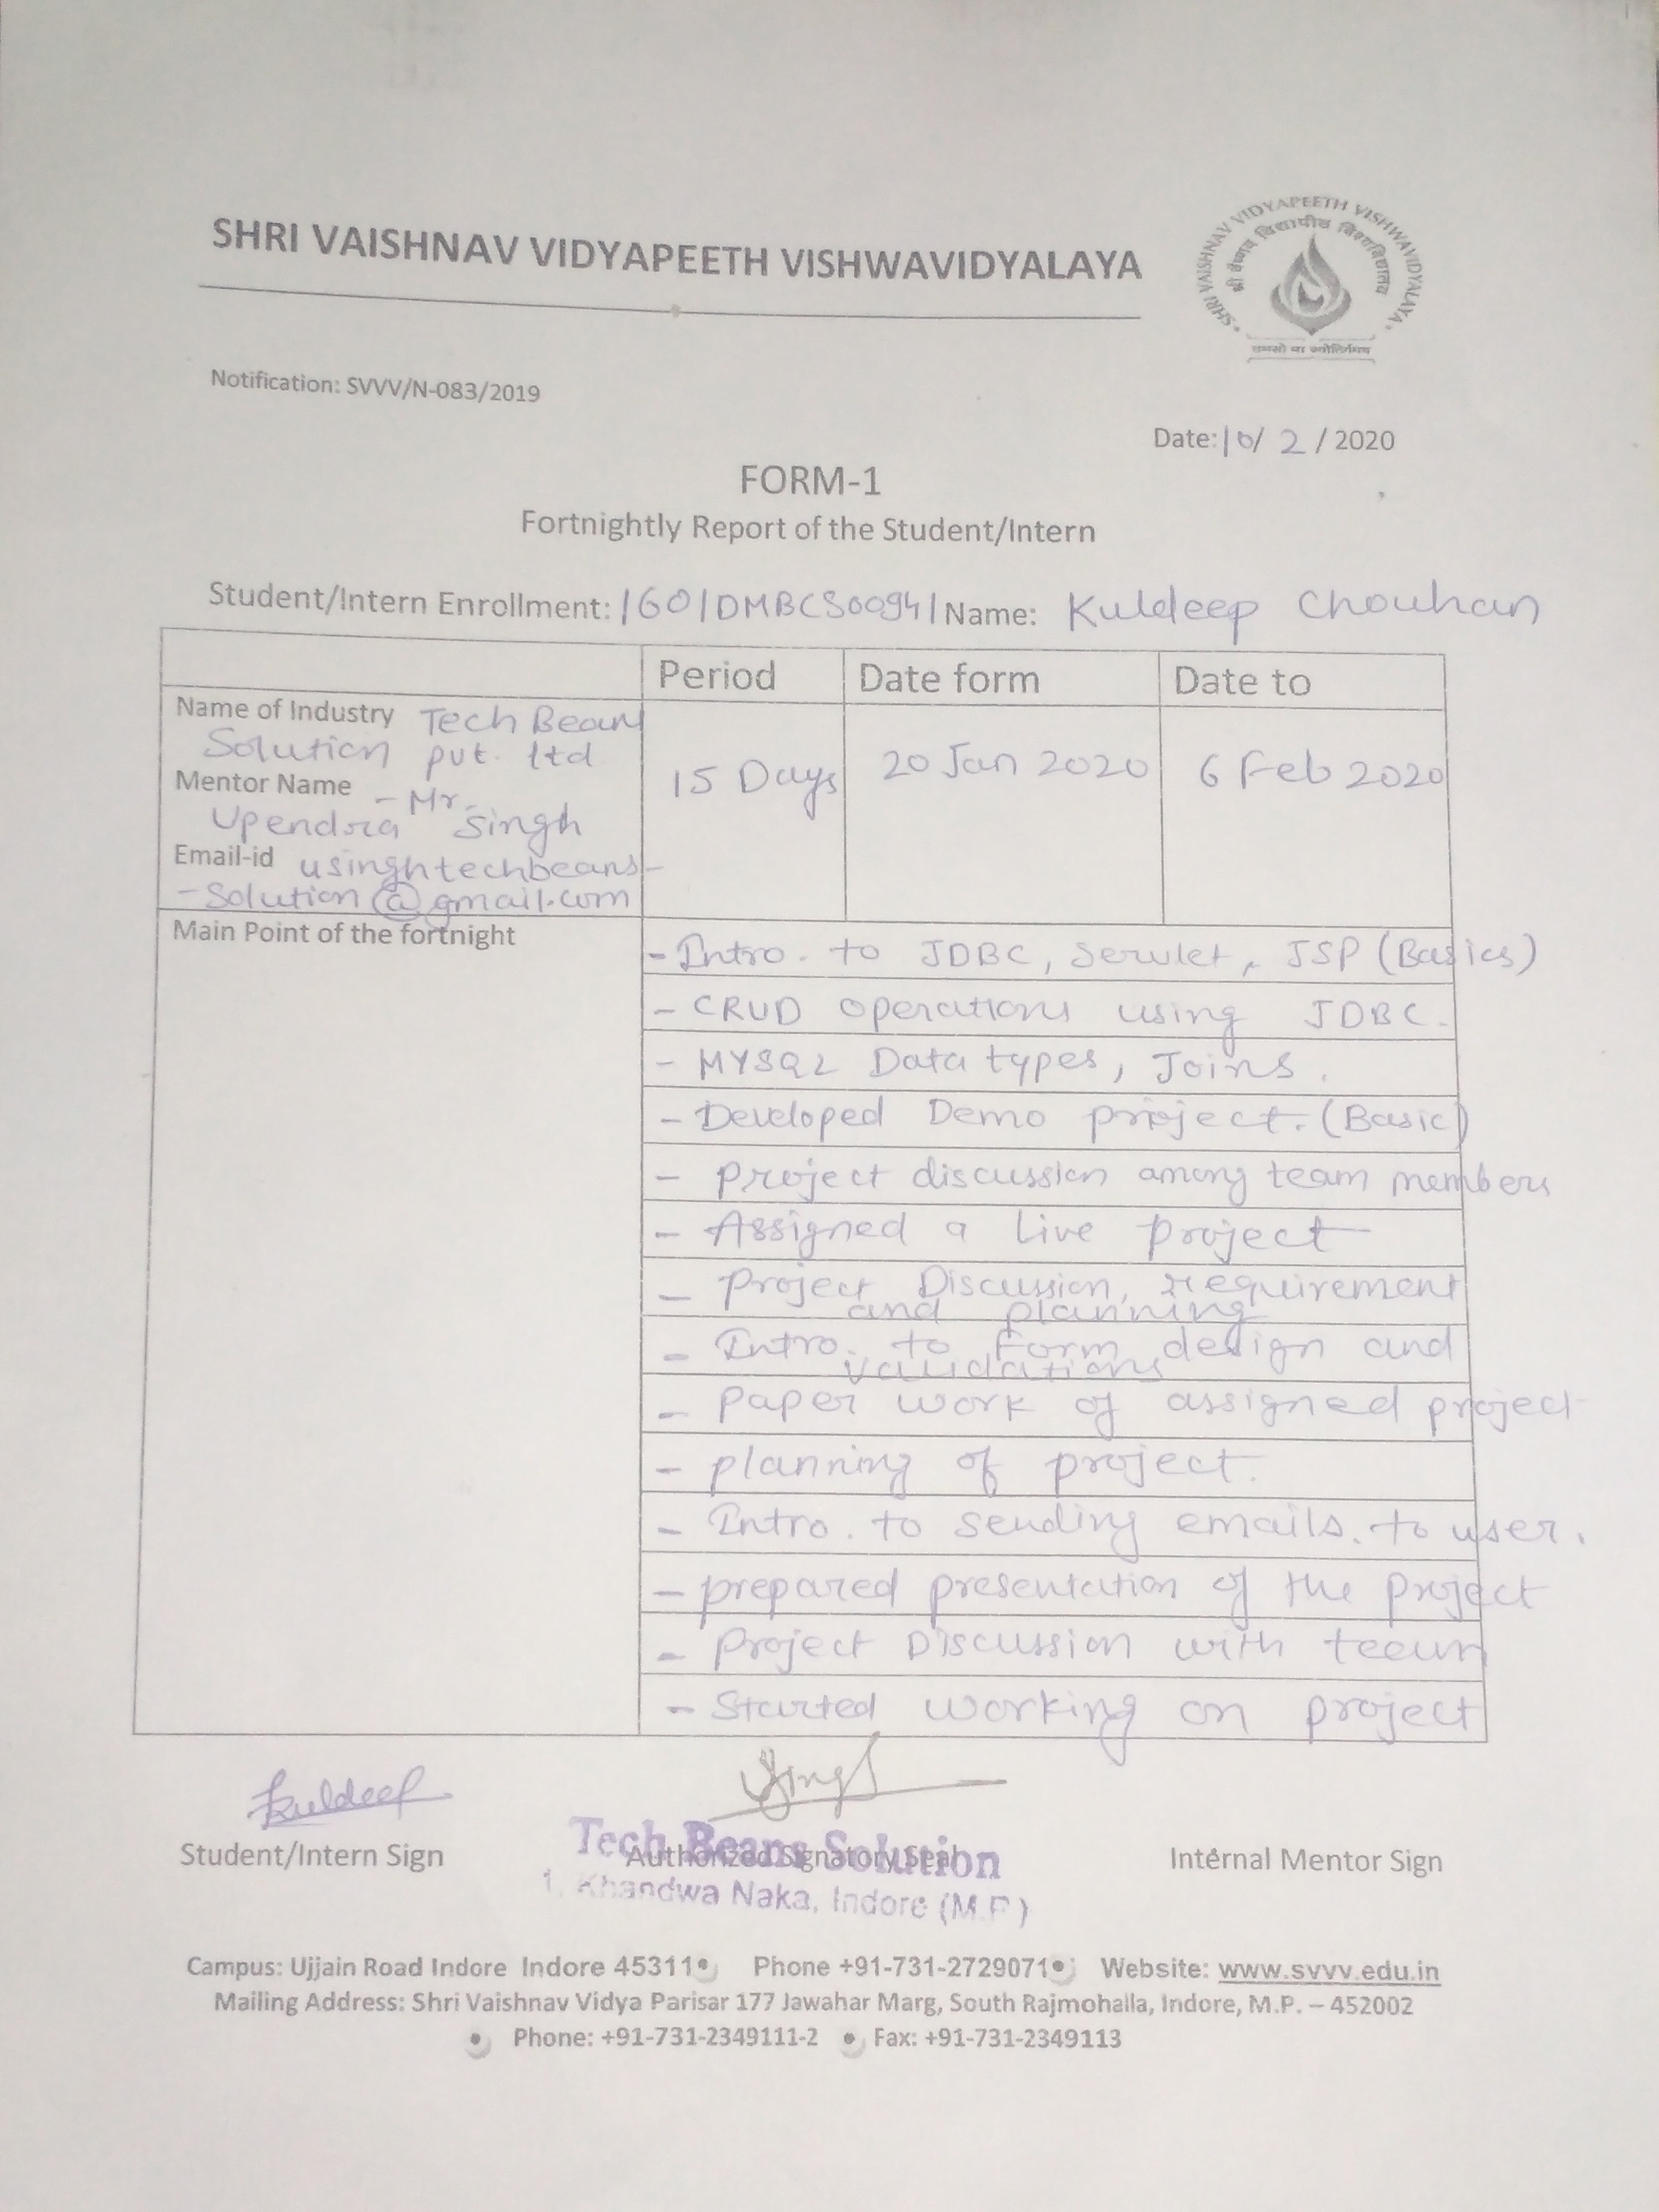 SHRI VAISHNAV VIDYAPEETH VISHWAVIDYALAYA
SHRI VAISHNAV VIDYAPEETH VISHWAVIDYALAYA
श्री वैष्णव विद्यापीठ विश्वविद्यालय
तमसो मा ज्योतिर्गमय
Notification: SVVV/N-083/2019
Date: 10/ 2 / 2020
FORM-1
Fortnightly Report of the Student/Intern
Student/Intern Enrollment: 1601DMBCS00941 Name: Kuldeep Chouhan
Period Date form Date to
Name of Industry Tech Beans
Solution pvt. ltd
Mentor Name - Mr.
Upendra Singh
Email-id usinghtechbeans-
-Solution@gmail.com
15 Days 20 Jan 2020 6 Feb 2020
Main Point of the fortnight
- Intro. to JDBC, Servlet, JSP (Basics)
- CRUD operations using JDBC.
- MYSQL Data types, Joins.
- Developed Demo project. (Basic)
- project discussion among team members
- Assigned a Live project
- project Discussion, requirement
and planning
- Intro. to Form design and
validations
- Paper work of assigned project
- planning of project.
- Intro. to sending emails. to user.
- prepared presentation of the project
- project Discussion with team
- Started working on project
Kuldeep
Student/Intern Sign
Authorized Signatory Seal
Internal Mentor Sign
Tech Beans Solution
1, Khandwa Naka, Indore (M.P.)
Campus: Ujjain Road Indore Indore 45311 Phone +91-731-2729071 Website: www.svvv.edu.in
Mailing Address: Shri Vaishnav Vidya Parisar 177 Jawahar Marg, South Rajmohalla, Indore, M.P. – 452002
• Phone: +91-731-2349111-2 • Fax: +91-731-2349113